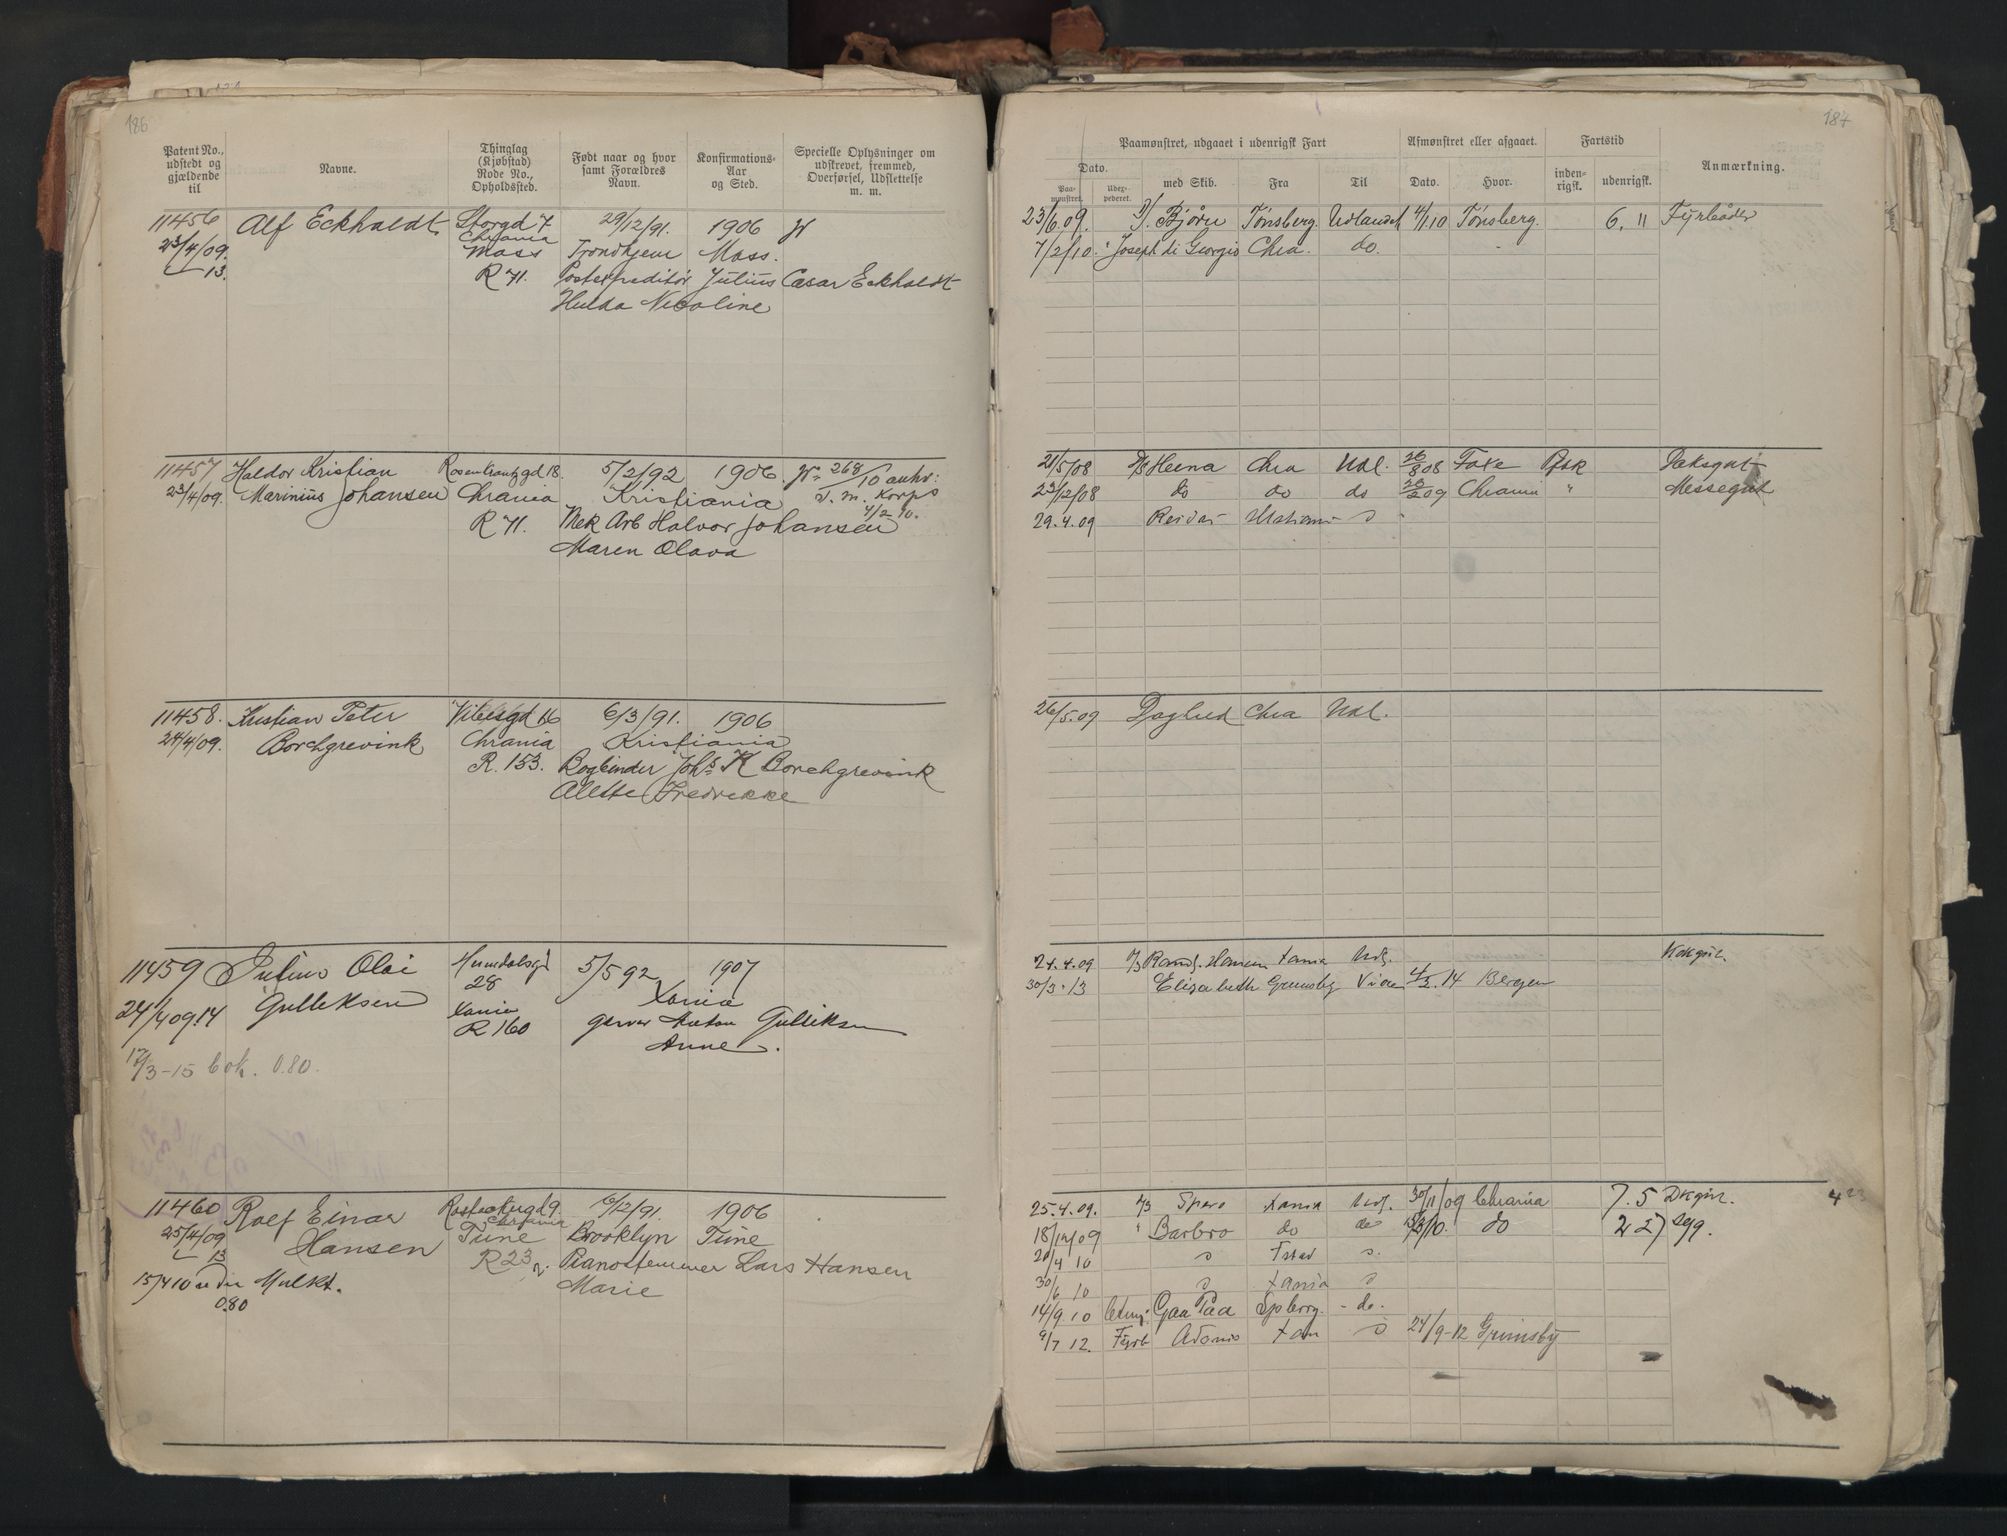 186
Patent No., udstedt og gjældende til
Navne.
Thinglag (Kjøbstad) Rode No., Opholdssted.
Født naar og hvor samt Forældres Navn.
Konfirmations-Aar og Sted.
Specielle Oplysninger om udskrevet, fremmed, Overførsel, Udslettelse m. m.
11456 Alf Eckholdt Storgd 7 29/12/91. 1906
23/4/09. Chrania
13. Moss Trondhjem Moss.
R 71. Postexpeditør Julius Cæsar Eckholdt
Hulda Nicoline
11457 Haldor Kristian Rosenkrantzgd 18. 5/2/92 1906 268/10 anhv:
23/4/09. Marinius Johansen Chrania Kristiania v. m. Korps
4/2 10.
R 71. Mek Arb Halvor Johansen
Maren Olava
11458. Kristian Peter Vibesgd 16 6/3/91. 1906
24/4/09. Borchgrevink Chrania Kristiania
R. 153. Bogbinder Johs K Borchgrevink
Fredrikke
11459 Julius Olai 28 5/5 92 1907
24/4 09 14 Gulliksen Xania Xania
R 160 Garver Anton Gulliksen
Anne.
17/3-15 bok. 0.80.
11460 Rolf Einar 6/12/91. 1906
25/4/09 Hansen Chrania
13 Tune Brooklyn Tune
R 23 Pianostemmer Lars Hansen
15/4 10 Mulkt. Marie
0.80
187
Paamønstret, udgaaet i udenrigsk Fart
Afmønstret eller afgaaet.
Fartstid
Anmærkning.
Dato.
Paa-mønstret. Udex-pederet. med Skib. Fra Til Dato. Hvor. inden-rigsk. udenrigsk.
23/6 09. Bjørn Tønsberg. Udlandet 4/1 10 Tønsberg. 6. 11 Fyrbøder
7/2/10. " Joseph di Giorgio Chra. do.
21/5/08 Chra Udl. 26/8 08 Faxe Dæksgut
23/12/08 do do do 28/2 09 Chrania " Messegut
29.4.09 Reidar
26/5.09 Chra Udl.
24.4.09 Xania Udl. Kokgut.
30/3.13 Elisabeth Grimsby 14 Bergen
25.4.09. Spero Xania Udl. 30/11/09 Chrania 7. 5 4
18/12/09 " Barbro do do do 2 27
20/4 10
30/6 10 Xania
14/9.10 Gaa Paa - do.
9/7 12. Fyrb Adonis Xan 24/9-12 Grimsby